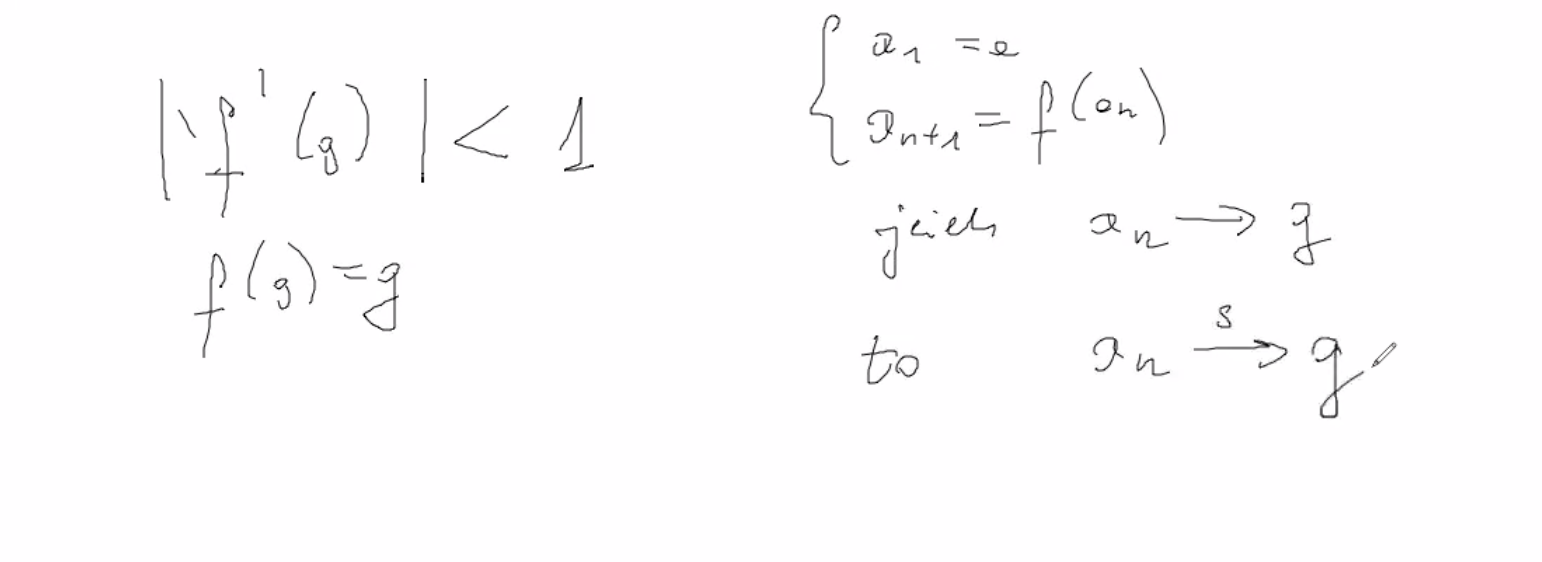 |f'(g)| < 1
f(g) = g
{ a₁ = a
a_{n+1} = f(a_n)
jeżeli a_n → g
to a_n →^s g